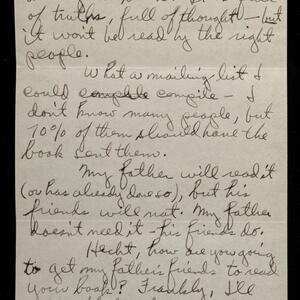 of truths, full of thought — but
it won't be read by the right
people.
What a mailing list I
could complete compile — I
don't know many people, but
70% of them should have the
book sent them.
My father will read it
(or has already done so), but his
friends will not. My father
doesn't need it — his friends do.
Hecht, how are you going
to get my father's friends to read
your book? Frankly, I'll